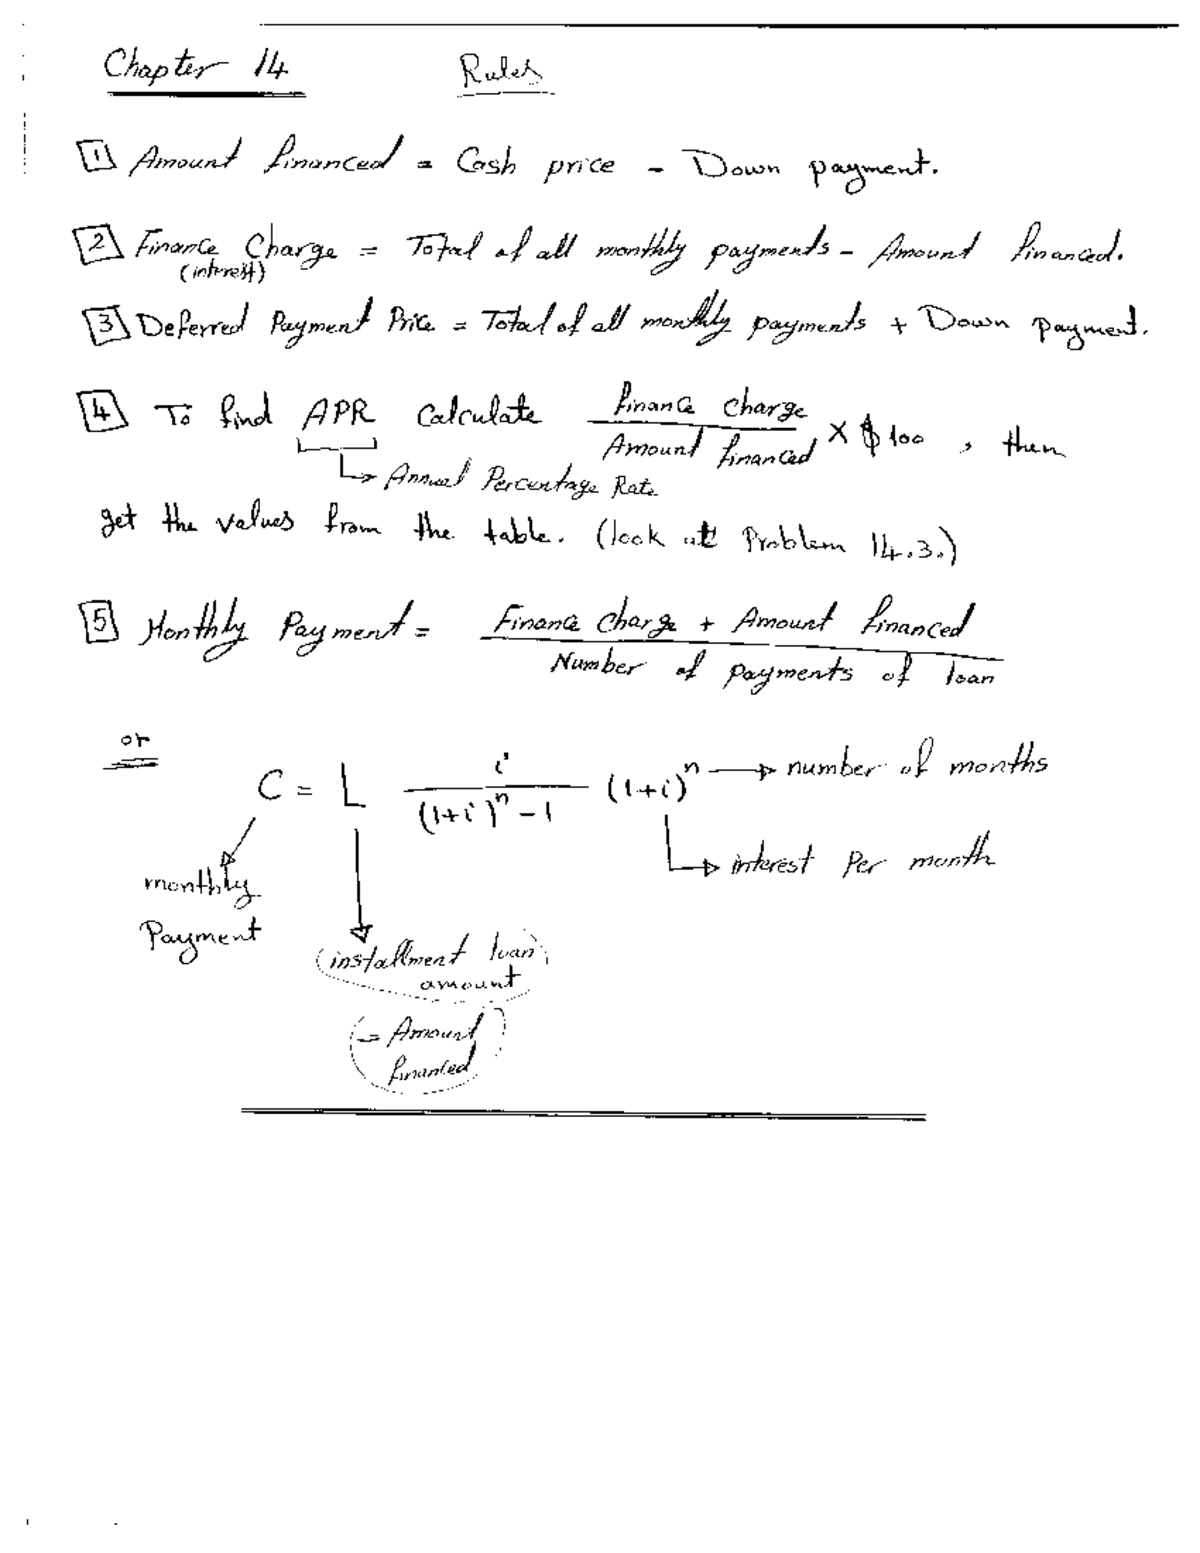 Chapter 14 Rules
1 Amount financed = Cash price - Down payment.
2 Finance Charge = Total of all monthly payments - Amount financed.
(interest)
3 Deferred Payment Price = Total of all monthly payments + Down payment.
4 To find APR Calculate finance charge / Amount financed X $100, then
Annual Percentage Rate
get the values from the table. (look at Problem 14.3.)
5 Monthly Payment = Finance charge + Amount financed / Number of payments of loan
or
C = L i / (1+i)^n - 1 (1+i)^n → number of months
interest Per month
monthly
Payment
(installment loan
amount
= Amount
financed